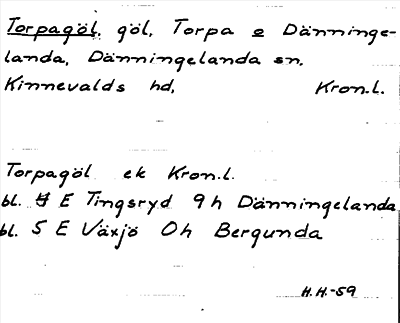 Torpagöl, göl, Torpa o Dänninge-
landa, Dänningelanda sn,
Kinnevalds hd, Kron.l.
Torpagöl ek Kron.l.
bl. 4 E Tingsryd 9h Dänningelanda
bl. 5 E Växjö 0h Bergunda
H.H.-59